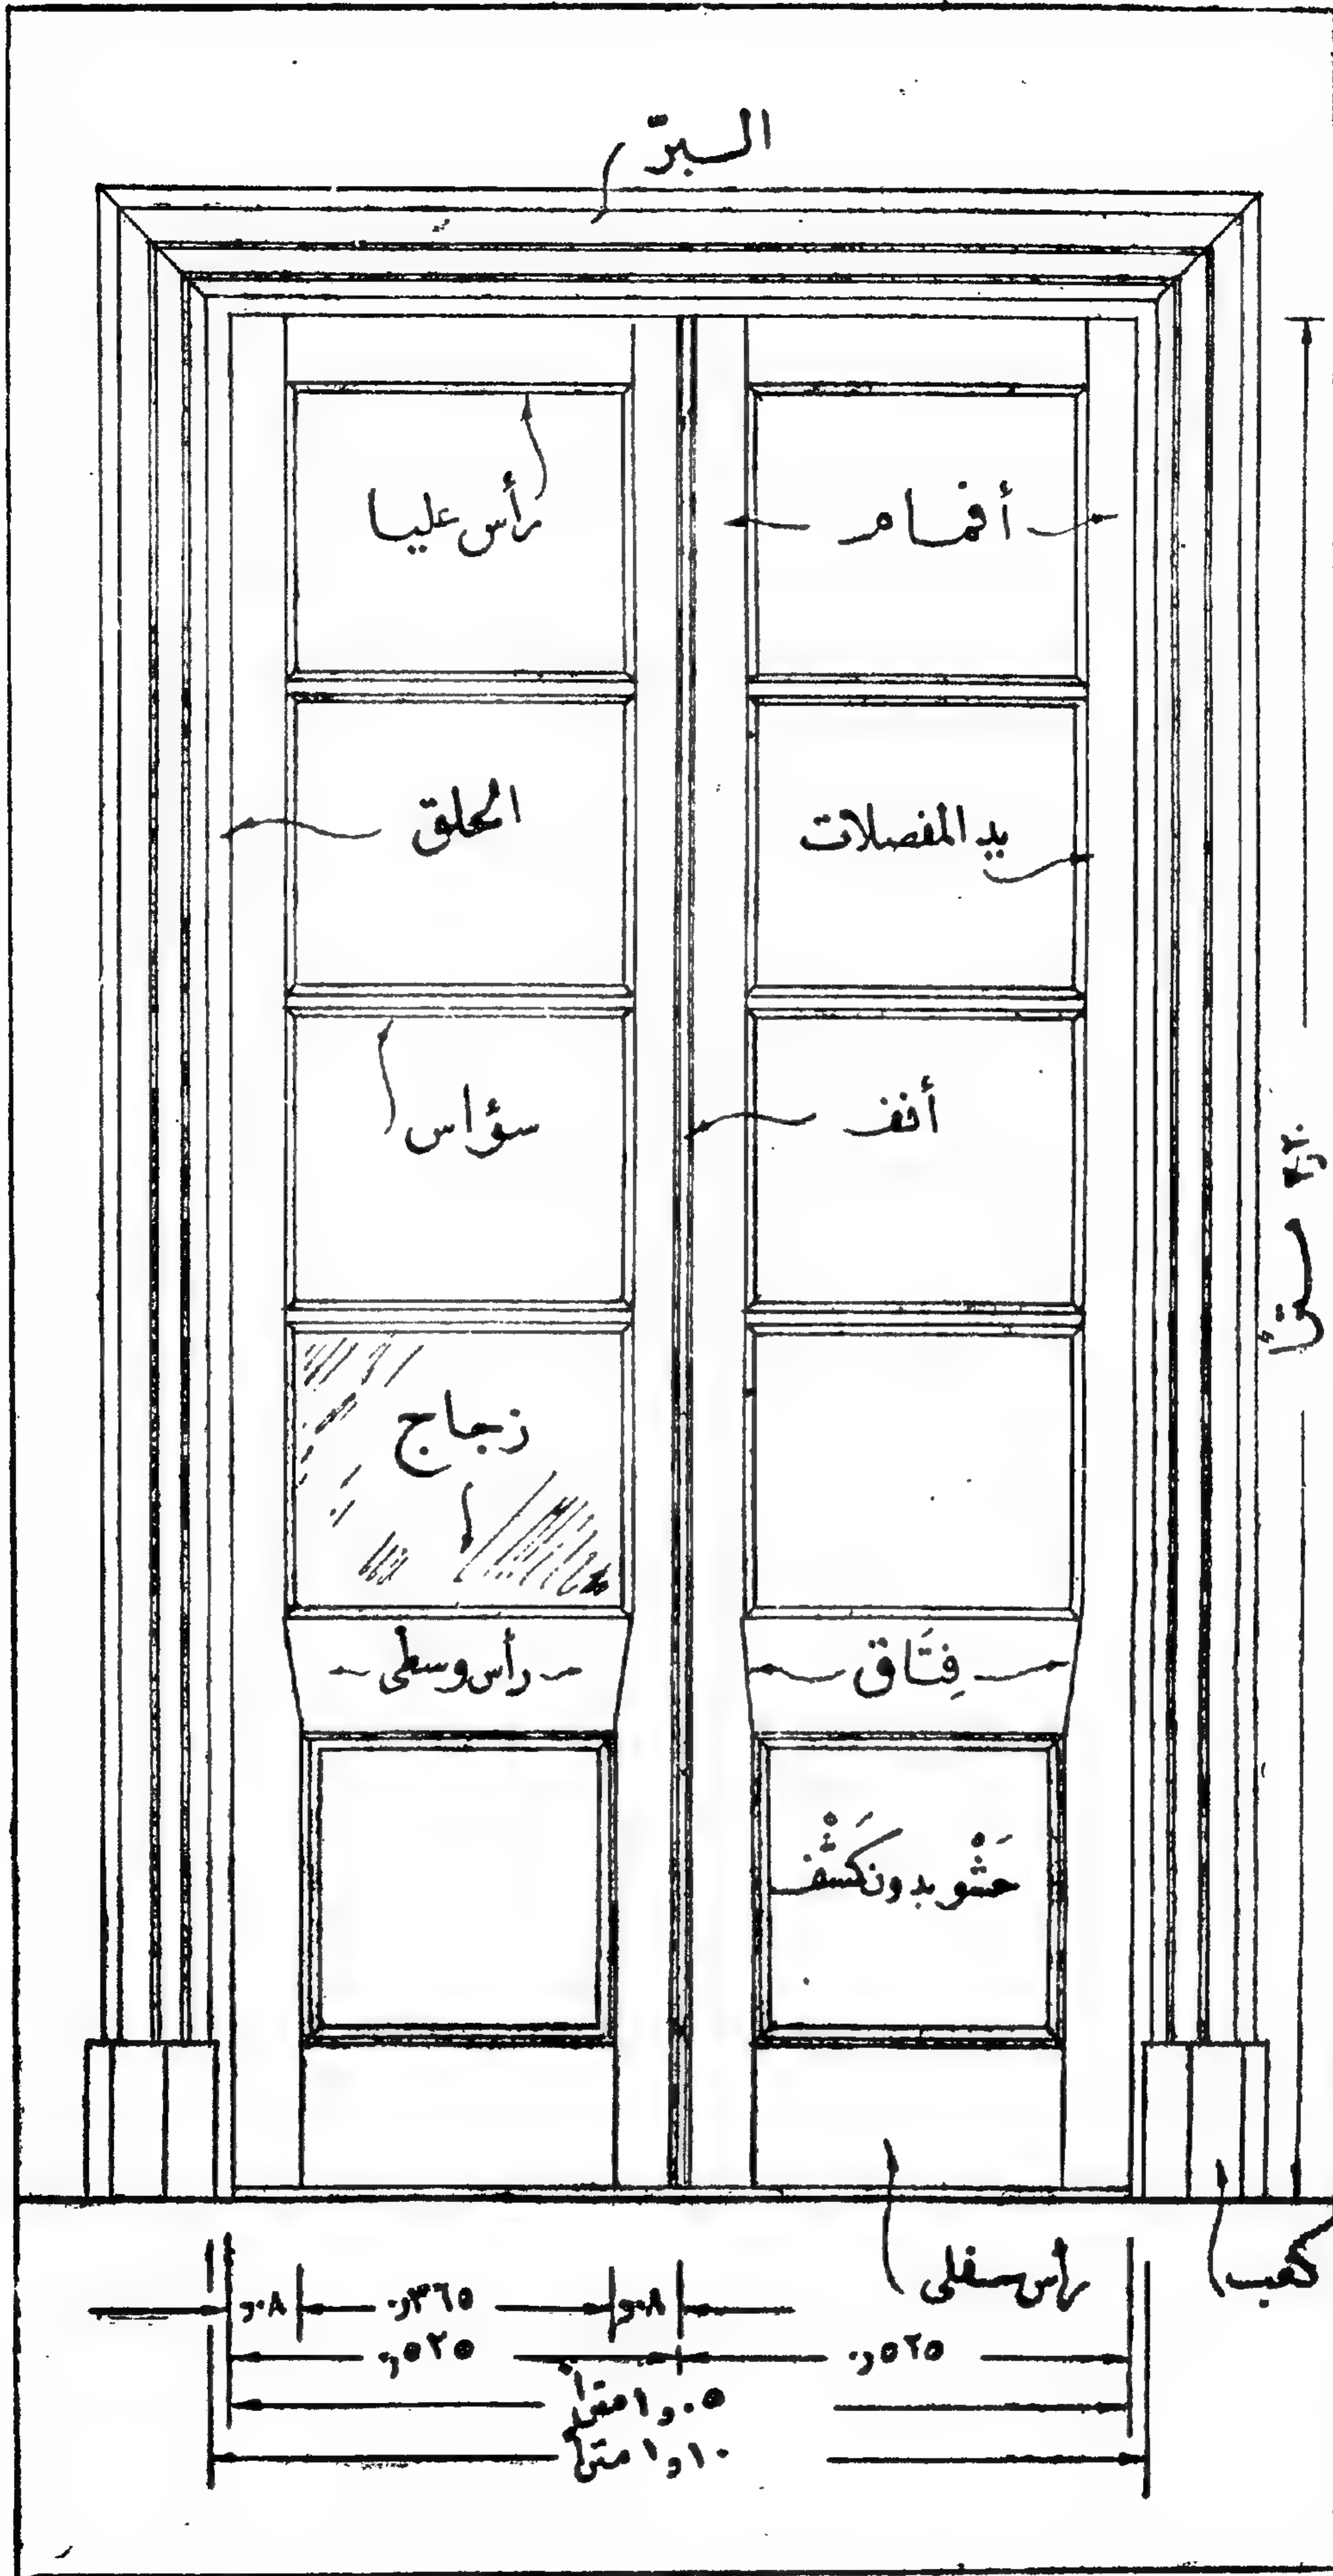 السبرّ
رأس عليا
أقمام
الحلق
يد المفصلات
سؤاس
أنف
زجاج
رأس وسطى
فِتَاق
حَشْو بدون كَشْف
رأس سفلى
كعب
٠٫٠٨
٠٫٣٦٥
٠٫٠٨
٠٫٥٢٥
٠٫٥٢٥
١٫٠٥ متراً
١٫١٠ متراً
متراً